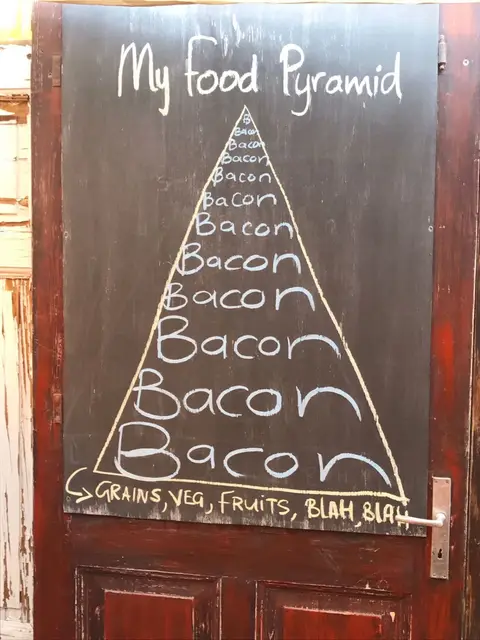 My Food Pyramid
B
Bacon
Bacon
Bacon
Bacon
Bacon
Bacon
Bacon
Bacon
Bacon
Bacon
Bacon
GRAINS, VEG, FRUITS, BLAH, BLAH